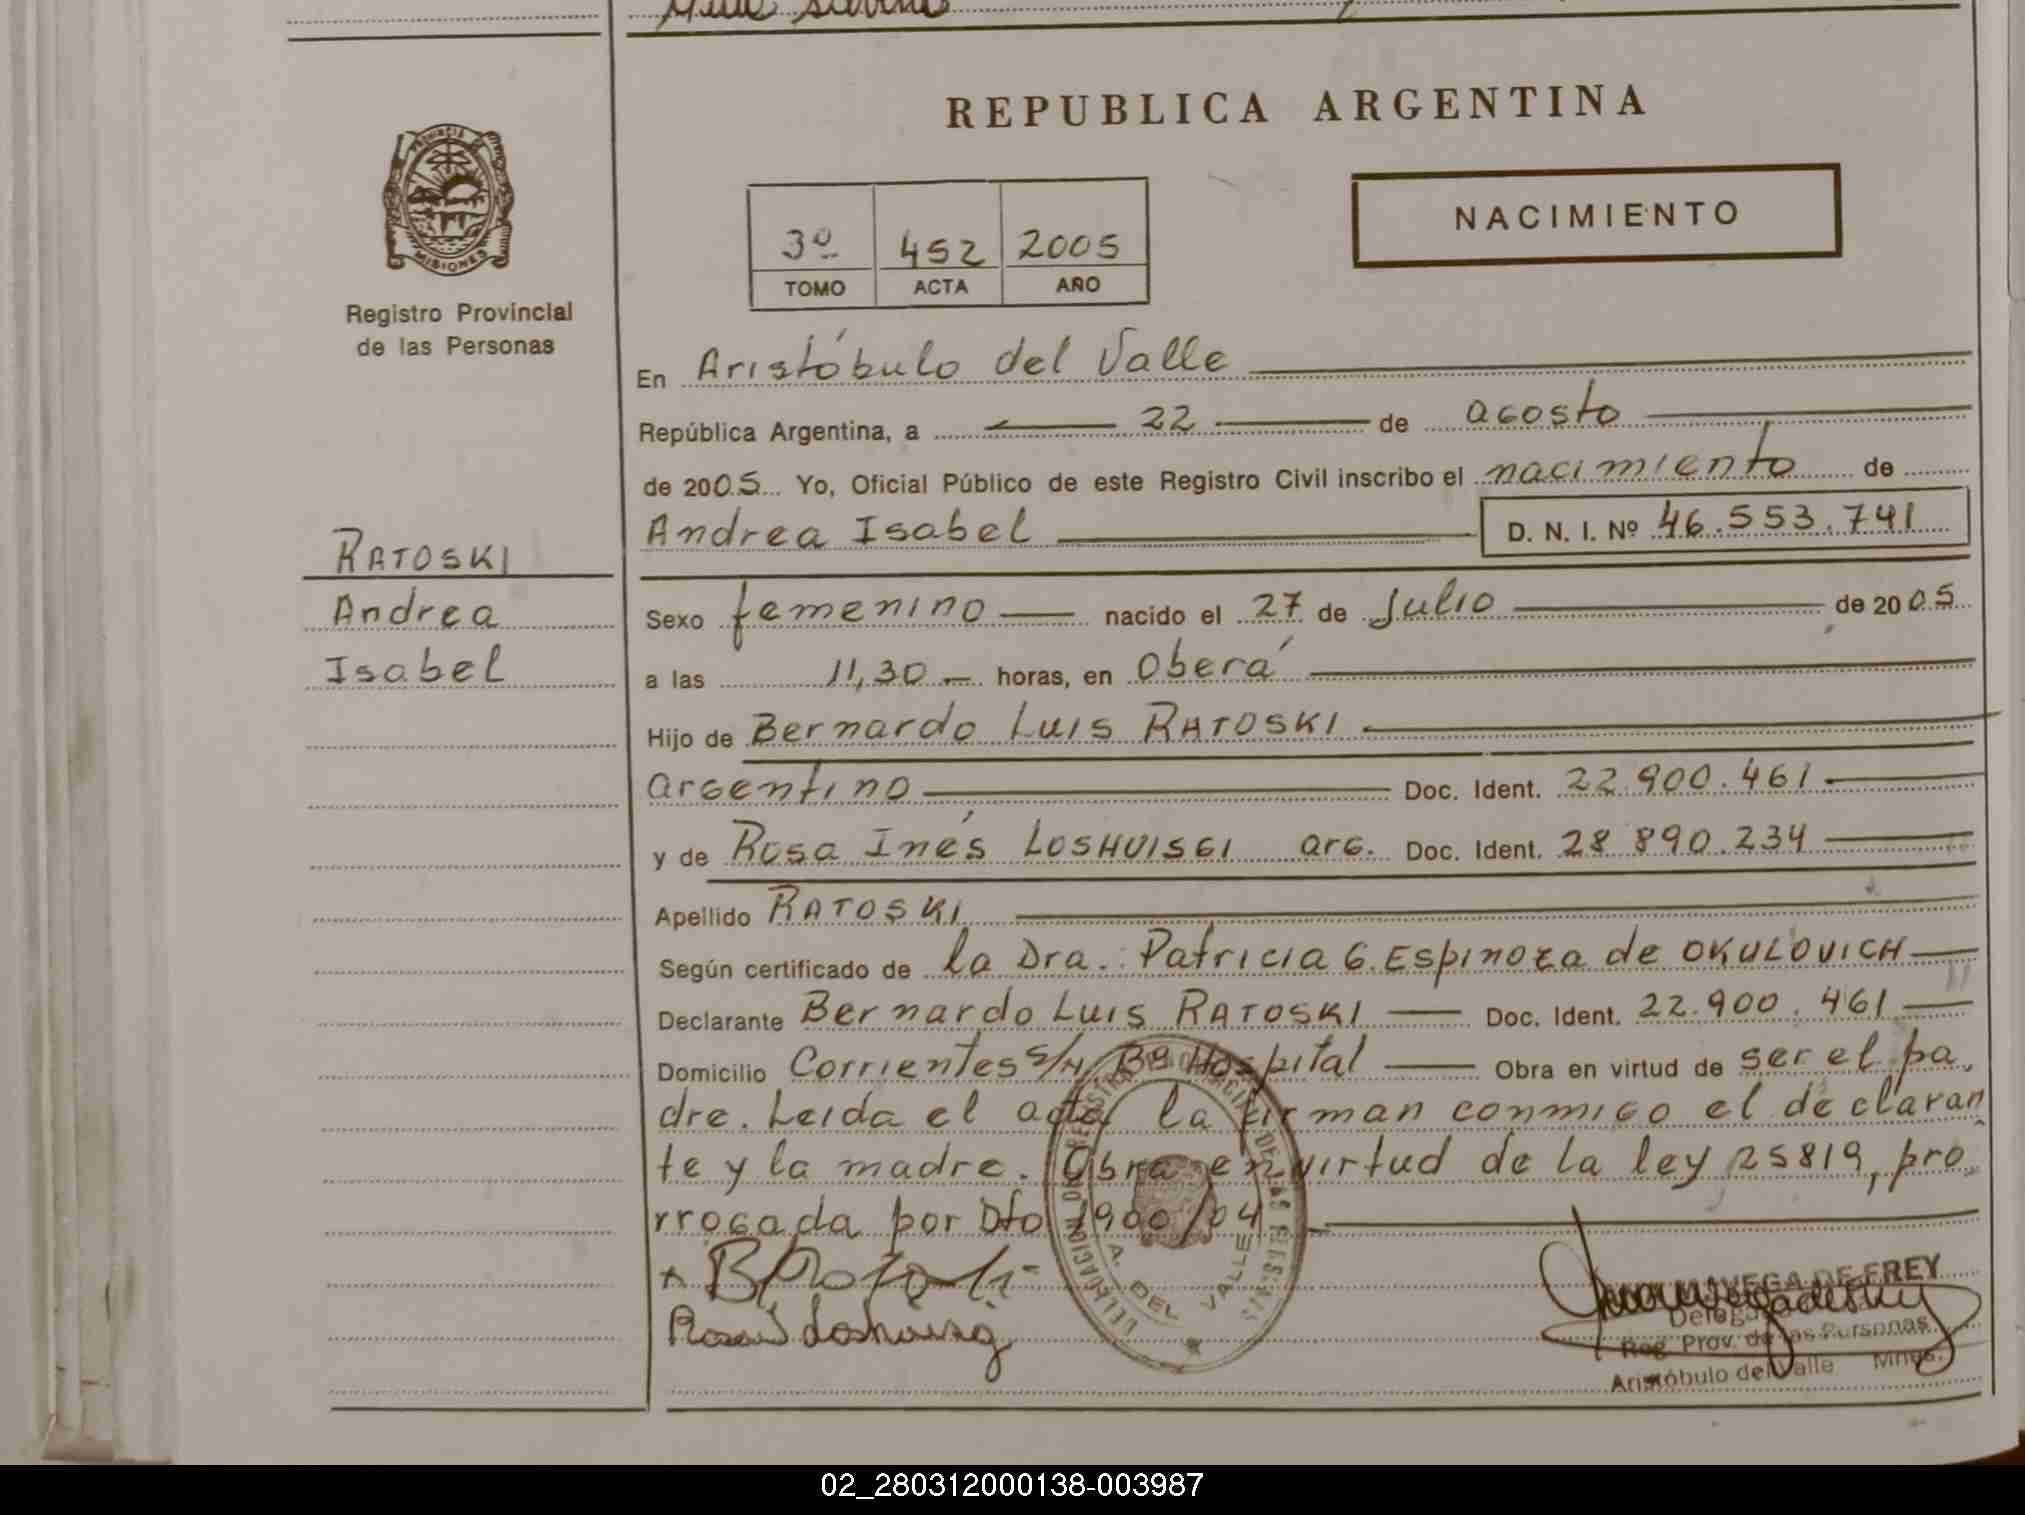 REPUBLICA ARGENTINA
PROVINCIA
MISIONES
Registro Provincial
de las Personas
NACIMIENTO
3º 452 2005
TOMO ACTA AÑO
En Aristóbulo del Valle
República Argentina, a 22 de agosto
de 2005 Yo, Oficial Público de este Registro Civil inscribo el nacimiento de
Andrea Isabel D. N. I. Nº 46.553.741
RATOSKI
Andrea
Isabel
Sexo femenino nacido el 27 de Julio de 2005
a las 11,30 horas, en Oberá
Hijo de Bernardo Luis RATOSKI
argentino Doc. Ident. 22.900.461
y de Rosa Inés LOSHUISGI arg. Doc. Ident. 28 890.234
Apellido RATOSKI
Según certificado de la Dra. Patricia G. Espinoza de OKULOVICH
Declarante Bernardo Luis RATOSKI Doc. Ident. 22.900.461
Domicilio Corrientes s/n Bº Hospital Obra en virtud de ser el pa
dre. Leida el acta la firman conmigo el declaran
te y la madre. Obra en virtud de la ley 25819, pro
rrogada por Dto 1900/04
A. DEL VALLE
VEGA DE FREY
Delegada
Reg. Prov. de las Personas
Aristóbulo del Valle Mnes.
02_280312000138-003987